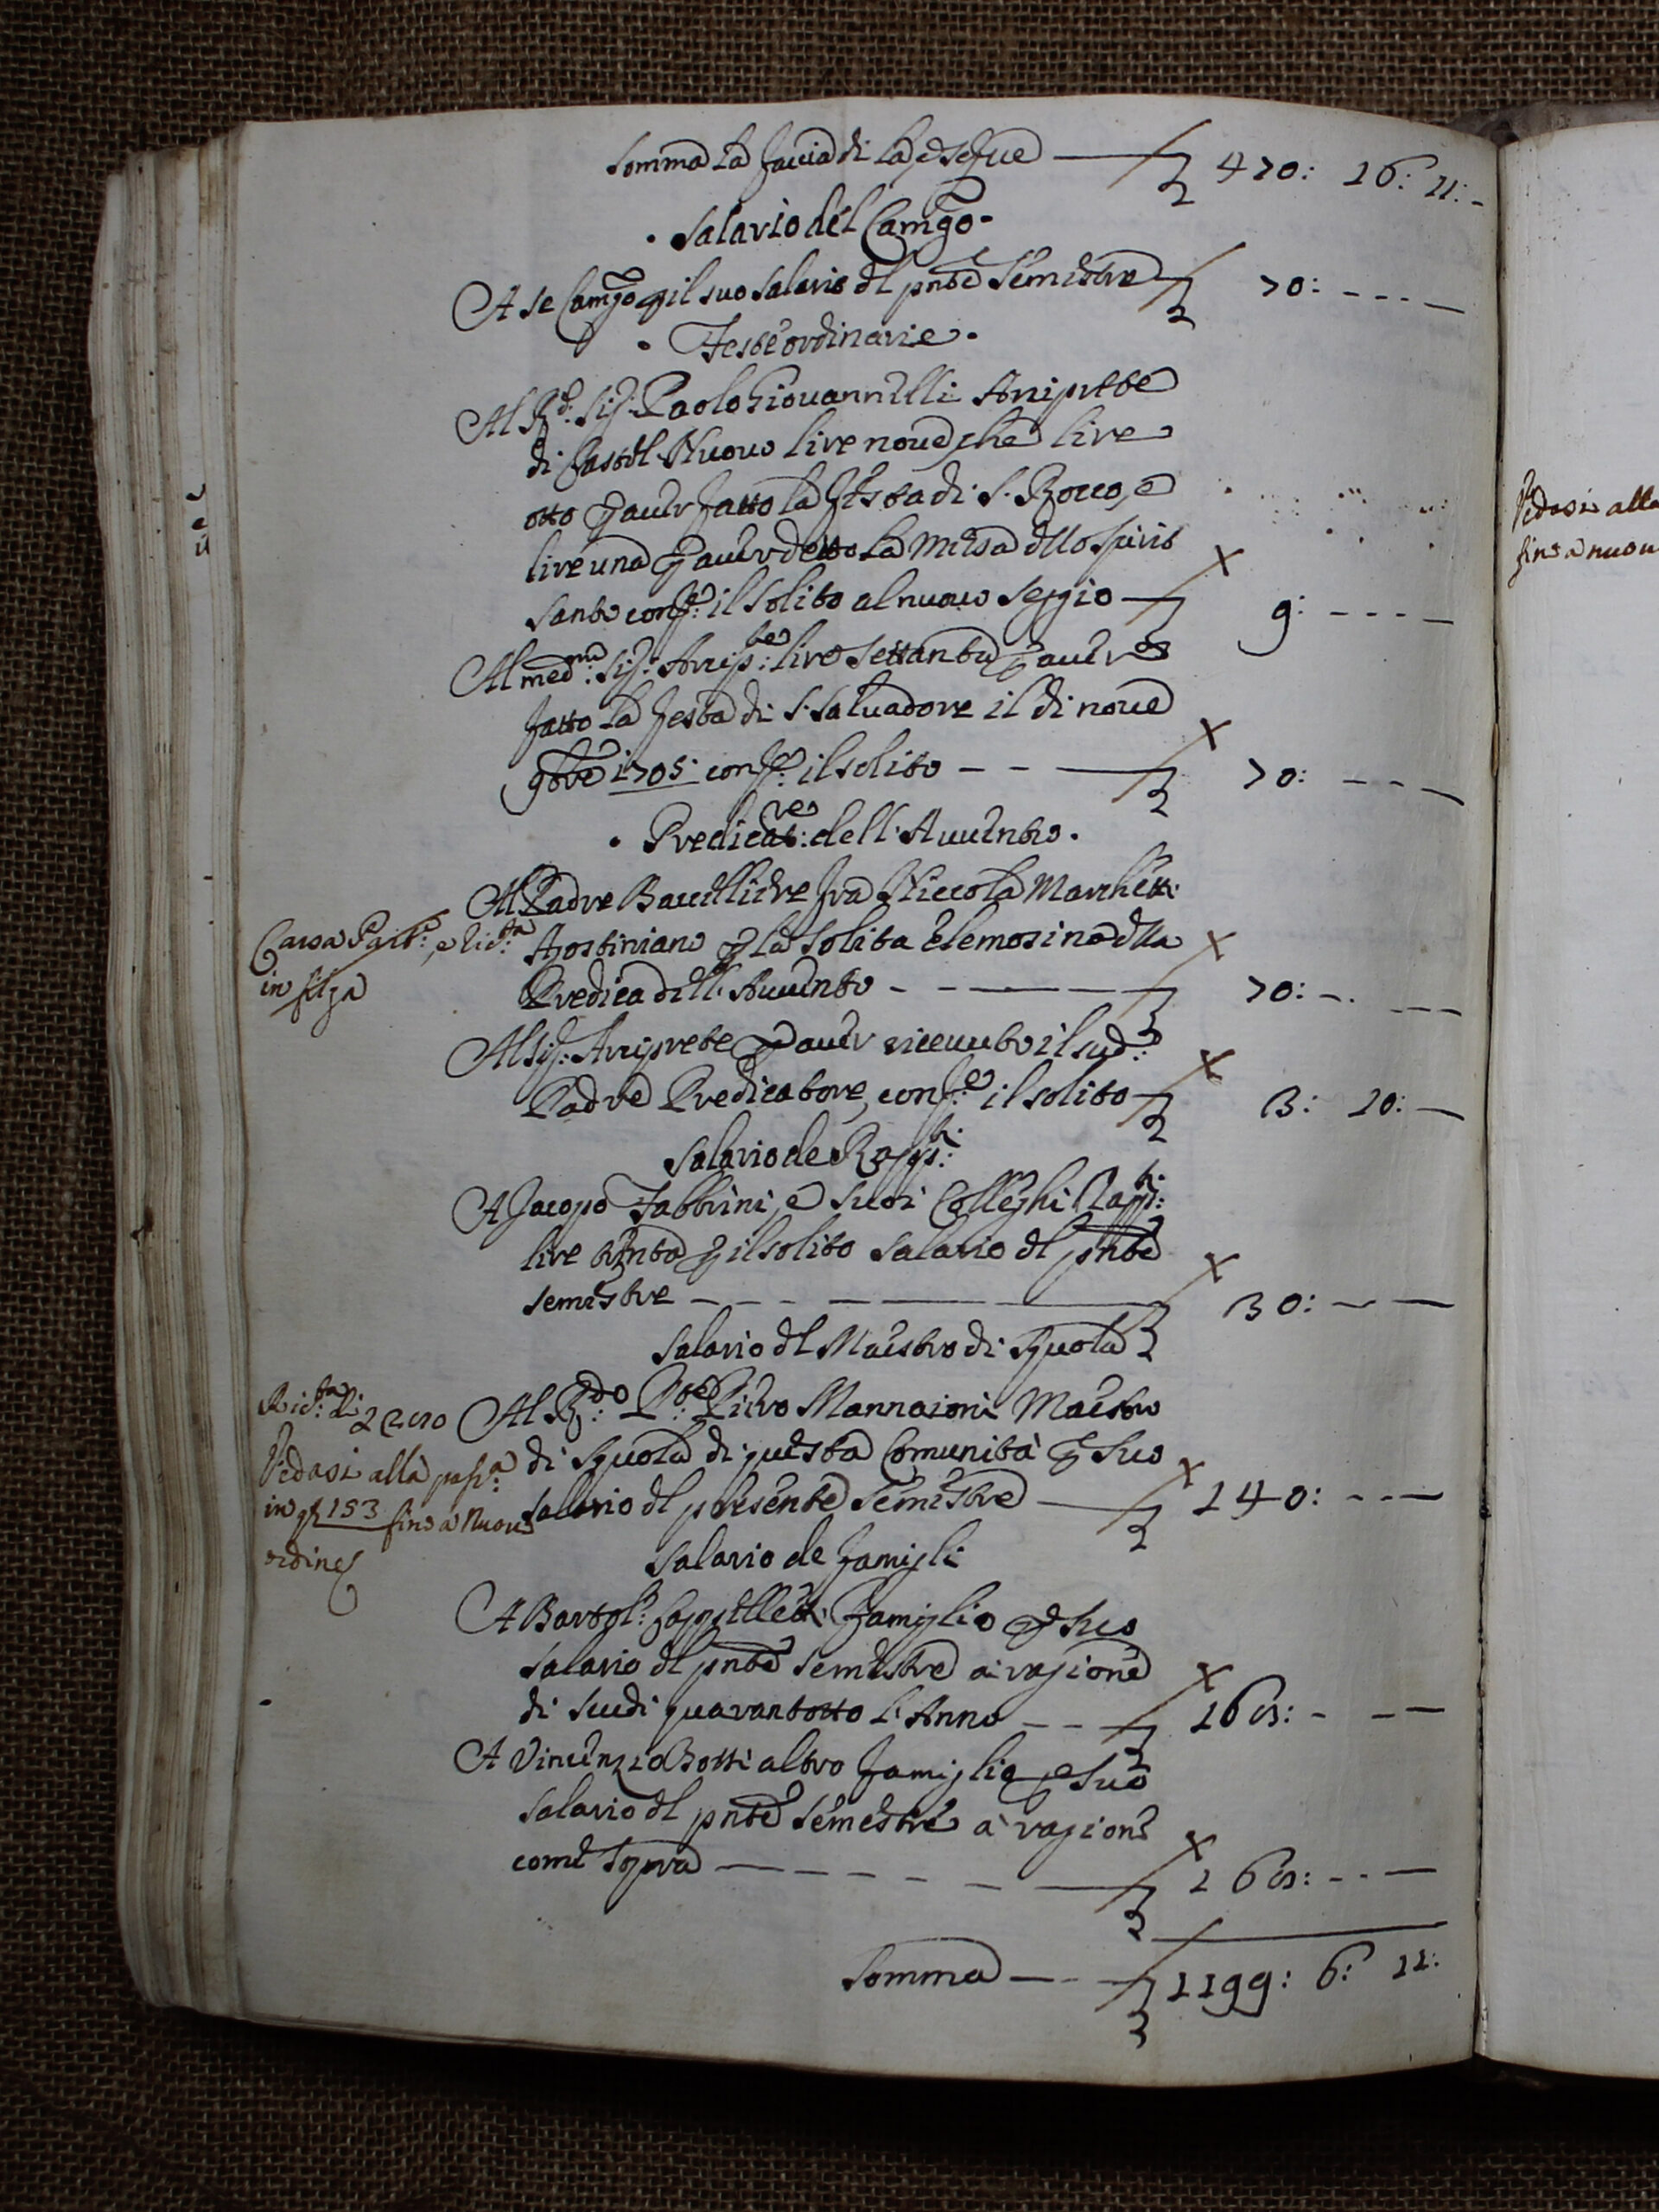 Somma la faccia di la, e segue — £ 470: 16: 11: -
· Salario del Camgo ·
A se Camgo p il suo salario dl pnte semestre £ 70: - - - —
· Feste ordinarie ·
Al Rd: Sig: Paolo Giovannelli Arciprete
di Castel Nuovo lire nove, che lire
otto p aver fatto la Festa di S. Rocco, e
lire una p aver detto la Messa dello Spirito
Santo conf.e il solito al nuovo seggio — £ 9: - - - —
Al med.mo Sig: Arcip:te lire settanta p aver
fatto la festa di S. Salvadore il di nove
9bre 1705 conf.e il solito - - — £ 70: - - —
· Predicat:re dell'Avvento ·
Al Padre Baccelliere fra Niccola Marchetti
Agostiniano p la solita elemosina della
Predica dell'Avvento - - — £ 70: - - —
in filza
Al Sig: Arciprete p aver ricevuto il sud:o
Padre Predicatore, conf.e il solito £ 3: 10: —
Salario de Rapp:ti
A Jacopo Fabbrini, e suoi Colleghi Rapp:ti
lire trenta p il solito salario dl pnte
semestre - - - — £ 30: — —
Salario dl Maestro di Squola
Al R:do P:te Piero Mannaioni Maestro
di Squola di questa Comunità p suo
salario dl presente semestre — £ 140: - - —
Vedasi alla pass:a
in q 153 fino a nuovo
ordine
Salario de famigli
A Bartol:o Cappelletti famiglio p suo
salario dl pnte semestre a ragione
di scudi quarantotto l'Anno - - — £ 168: - - —
A Vincenzio Botti altro famiglio p suo
salario dl pnte semestre a ragione
come sopra — - - - — £ 168: - - —
Somma — - £ 1199: 6: 11:
Vedasi alla
fino a nuov